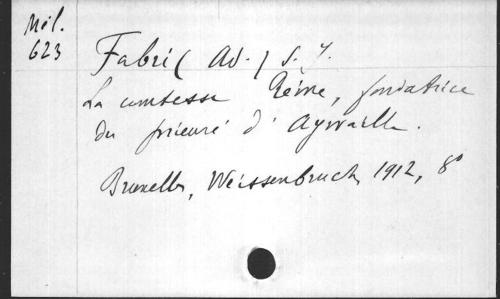 Mél.
623
Fabri (Ad.) S. J.
La comtesse Reine, fondatrice
du prieuré d'Aywaille.
Bruxelles, Weissenbruch, 1912, 8°